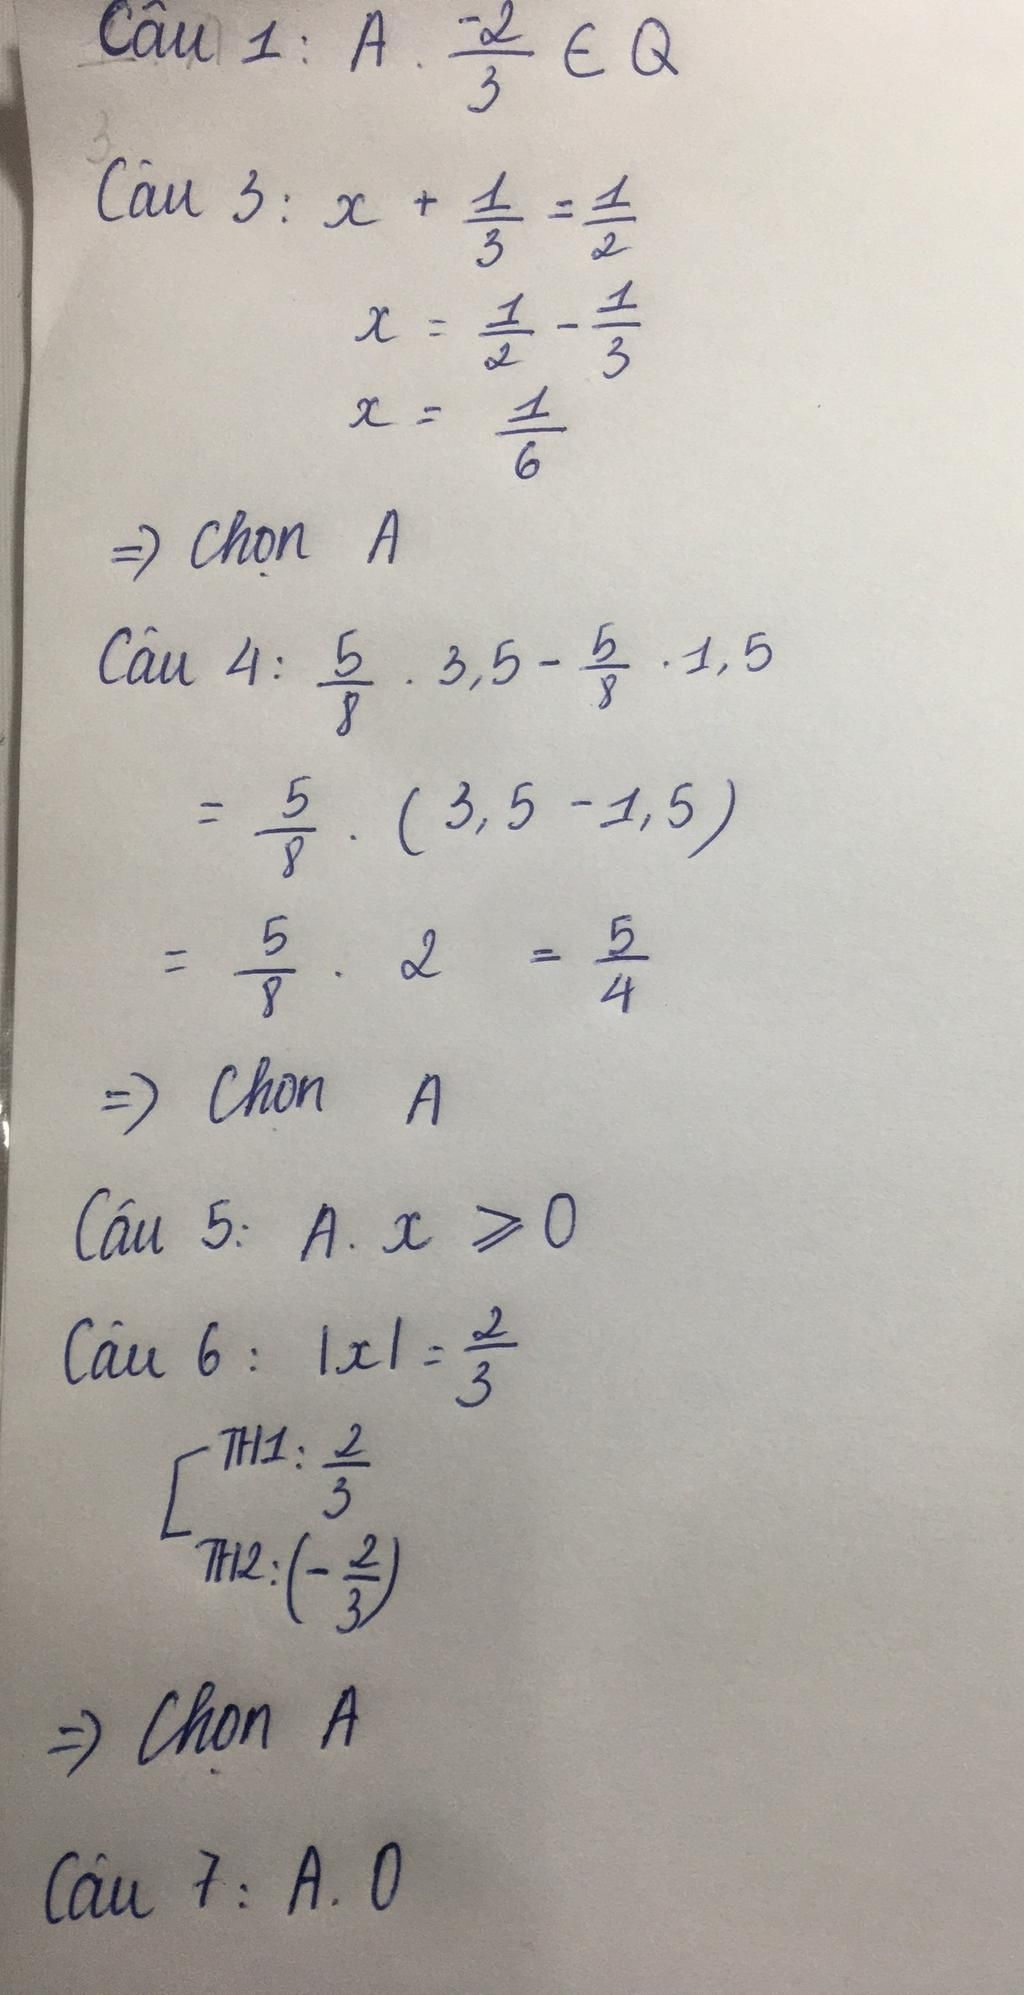 Câu 1: A. -2/3 ∈ Q
Câu 3: x + 1/3 = 1/2
x = 1/2 - 1/3
x = 1/6
=> Chọn A
Câu 4: 5/8 . 3,5 - 5/8 . 1,5
= 5/8 . (3,5 - 1,5)
= 5/8 . 2 = 5/4
=> Chon A
Câu 5: A. x ⩾ 0
Câu 6: |x| = 2/3
[ TH1: 2/3
TH2: (-2/3)
=> Chọn A
Câu 7: A. 0